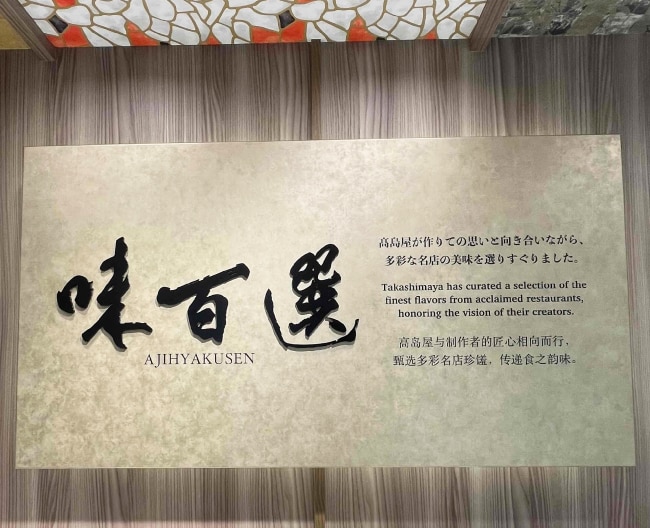 味百選
AJIHYAKUSEN
髙島屋が作りての思いと向き合いながら、
多彩な名店の美味を選りすぐりました。
Takashimaya has curated a selection of the
finest flavors from acclaimed restaurants,
honoring the vision of their creators.
高岛屋与制作者的匠心相向而行，
甄选多彩名店珍馐，传递食之韵味。